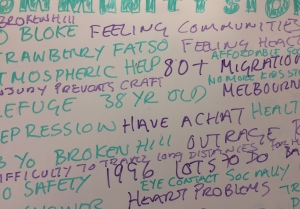 BROKEN Hill
BLOKE FEELING COMMUNITIES
STRAWBERRY FATSO FEELING
AFFORDABLE
ATMOSPHERIC HELP 80+ MIGRATION
PREVENTS CRAFT NO MORE KIDS
REFUGE 38 YR OLD MELBOURN
DEPRESSION HAVE A CHAT HEALT
YO BROKEN Hill OUTRAGE
DIFFICULTY TO TRAVEL LONG DISTANCES FOR
SAFETY 1996 LOTS TO DO BA
EYE CONTACT SOCIALLY
HEART PROBLEMS TR